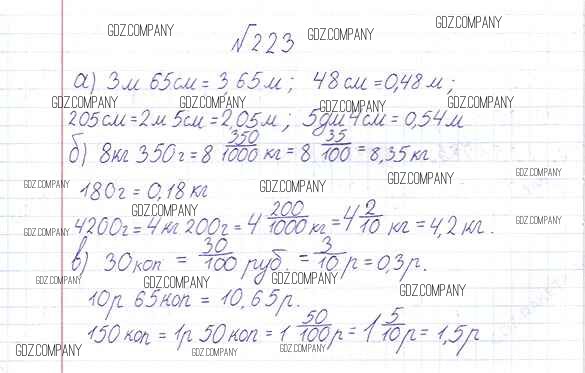 GDZ.COMPANY GDZ.COMPANY GDZ.COMPANY
№223
а) 3м 65см = 3,65м; 48см = 0,48м;
GDZ.COMPANY GDZ.COMPANY GDZ.COMPANY GDZ.COMPANY
205см = 2м 5см = 2,05м; 5дм 4см = 0,54м
б) 8кг 350г = 8 350/1000 кг = 8 35/100 = 8,35кг
GDZ.COMPANY GDZ.COMPANY GDZ.COMPANY GDZ.COMPANY
180г = 0,18кг
GDZ.COMPANY
4200г = 4кг 200г = 4 200/1000 кг = 4 2/10 кг = 4,2кг.
GDZ.COMPANY GDZ.COMPANY
в) 30коп = 30/100 руб. = 3/10 р = 0,3р.
GDZ.COMPANY GDZ.COMPANY GDZ.COMPANY GDZ.COMPANY
10р 65коп = 10,65р.
150коп = 1р 50коп = 1 50/100 р = 1 5/10 р = 1,5р
GDZ.COMPANY GDZ.COMPANY GDZ.COMPANY